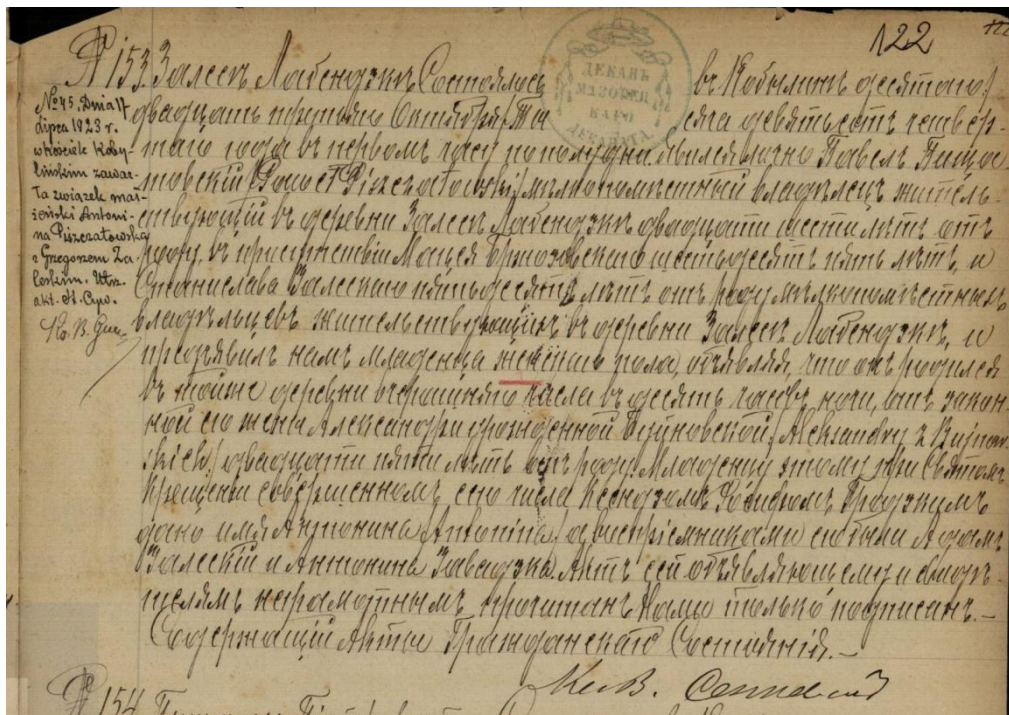 122
№ 153 Залесе Лабендзкѣ Состоялось въ Кобылинѣ десятаго/
двадцать третьяго Октября Ты сяча девятьсотъ четвер-
таго года въ первомъ часу по полудни. Явился лично Павелъ Пища
товскій /Paweł Piszczatowski/ мѣлкопомѣстный владѣлецъ житель-
ствующій въ деревни Залесе Лабендзкѣ двадцати шести лѣтъ отъ
роду, въ присутствіи Мацея Бржозовскаго шестьдесятъ пять лѣтъ, и
Станислава Залескаго пятьдесятъ лѣтъ отъ роду мѣлкопомѣстныхъ
владѣльцевъ жительствующихъ въ деревни Залесе Лабендзкѣ, и
предъявилъ намъ младенца женскаго пола, объявляя, что онъ родился
въ тойже деревни вчерашняго числа въ десять часовъ ночи, отъ закон-
ной его жены Александры урожденной Буйновской /Aleksandry z Bujnow-
skich/ двадцати пяти лѣтъ отъ роду. Младенцу этому при Святомъ
Крещеніи совершенномъ сего числа Ксендзомъ Гродзкимъ
дано имя Антонина /Antonina/ а воспріемниками его были Адамъ
Залескій и Антонина Завадзка. Актъ сей объявляющему и свидѣ-
телямъ неграмотнымъ прочитанъ Нами только подписанъ.-
Содержащій Акты Гражданскаго Состоянія.-
Кс. В.
№ 154
ДЕКАНЪ
МАЗОВЕЦ
КАГО
ДЕКАНАТА
№ 45. Dnia 17
Lipca 1923 r.
w kościele Koby-
lińskim zawar-
ła związek mał-
żeński Antoni-
na Piszczatowska
z Grzegorzem Za-
leskim. Utrz.
akt. St. Cyw.
Ks. B.